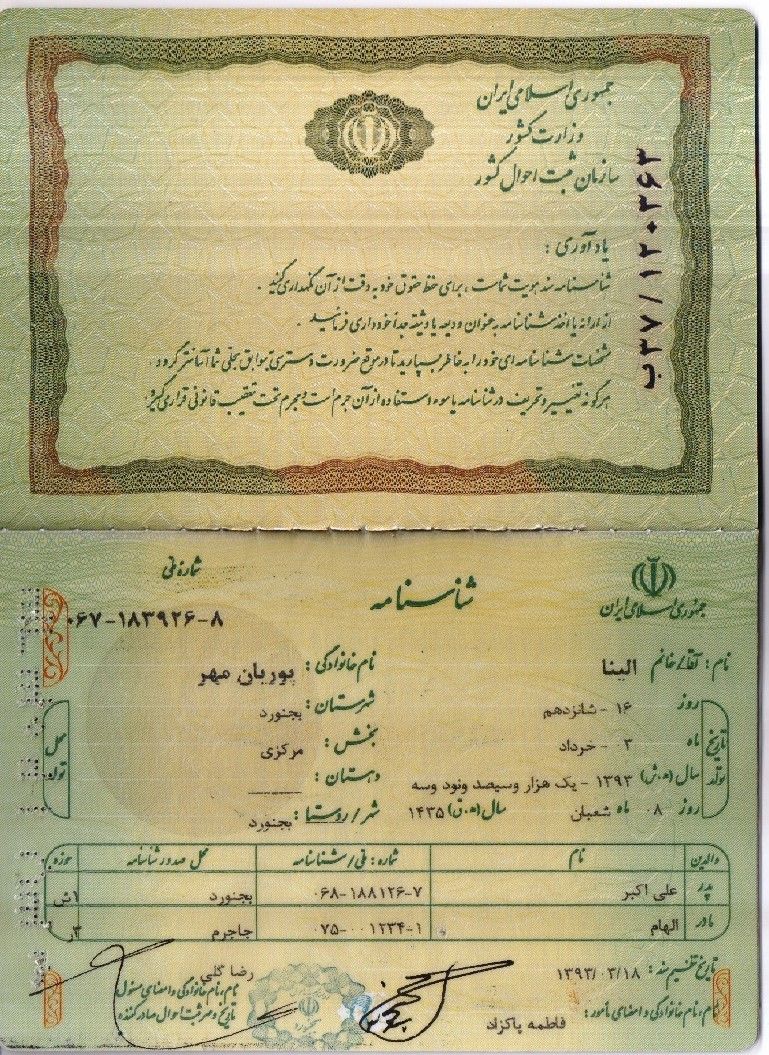 جمهوری اسلامی ایران
وزارت کشور
سازمان ثبت احوال کشور
ب۳۷/۱۲۰۳۶۳
یادآوری :
شناسنامه سند هویت شماست ، برای حفظ حقوق خود به دقت از آن نگهداری کنید .
از ارائه یا اخذ شناسنامه به عنوان ودیعه یا وثیقه جداً خودداری فرمائید .
مشخصات شناسنامه ای خود را به خاطر بسپارید تا در موقع ضرورت دسترسی سوابق سجلی شما آسانتر گردد .
هرگونه تغییر و تحریف در شناسنامه یا سوء استفاده از آن جرم است و مجرم تحت تعقیب قانونی قرار می گیرد .
جمهوری اسلامی ایران
شناسنامه
شماره ملی
۰۶۷-۱۸۳۹۲۶-۸
نام : آقا/خانم الینا نام خانوادگی : پوربان مهر
تاریخ تولد
روز ۱۶ - شانزدهم
ماه ۰۳ - خرداد
سال (ه.ش) ۱۳۹۳ - یک هزار وسیصد ونود وسه
روز ۰۸ ماه شعبان سال (ه.ق) ۱۴۳۵
محل تولد
شهرستان : بجنورد
بخش : مرکزی
دهستان :
شهر/روستا : بجنورد
والدین نام شماره : ملی/شناسنامه محل صدور شناسنامه حوزه
پدر علی اکبر ۰۶۸-۱۸۸۱۲۶-۷ بجنورد ۱ش
مادر الهام ۰۷۵-۰۰۱۲۳۴-۱ جاجرم ۳ر
تاریخ تنظیم سند : ۱۳۹۳/۰۳/۱۸
نام، نام خانوادگی و امضای مامور : فاطمه پاکزاد
رضا گلی
نام، نام خانوادگی و امضای مسئول
تاریخ و مهر ثبت احوال صادرکننده